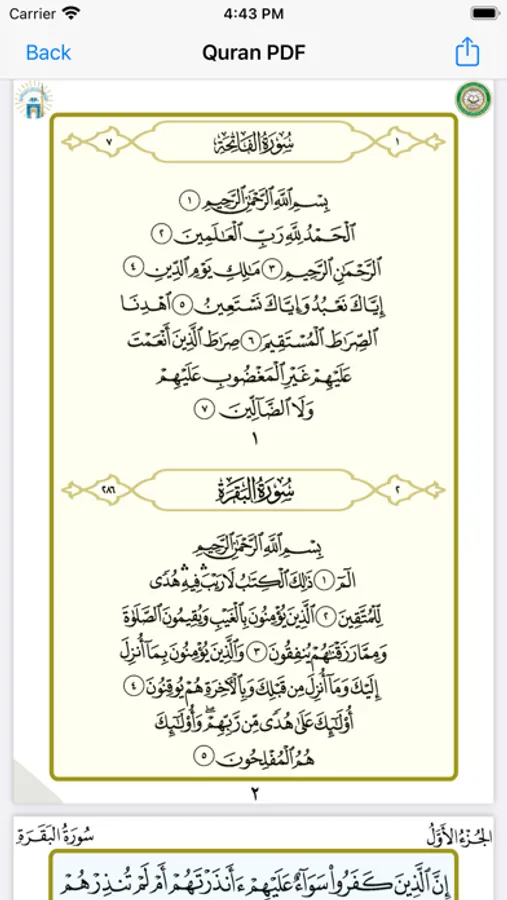 Carrier 4:43 PM
Back Quran PDF
١ سُورَةُ الفَاتِحَةِ ٧
بِسْمِ اللَّهِ الرَّحْمَٰنِ الرَّحِيمِ ١
الْحَمْدُ لِلَّهِ رَبِّ الْعَالَمِينَ ٢
الرَّحْمَٰنِ الرَّحِيمِ ٣ مَالِكِ يَوْمِ الدِّينِ ٤
إِيَّاكَ نَعْبُدُ وَإِيَّاكَ نَسْتَعِينُ ٥ اهْدِنَا
الصِّرَاطَ الْمُسْتَقِيمَ ٦ صِرَاطَ الَّذِينَ أَنْعَمْتَ
عَلَيْهِمْ غَيْرِ الْمَغْضُوبِ عَلَيْهِمْ
وَلَا الضَّآلِّينَ ٧
١
٢ سُورَةُ البَقَرَةِ ٢٨٦
بِسْمِ اللَّهِ الرَّحْمَٰنِ الرَّحِيمِ
الٓمٓ ١ ذَٰلِكَ الْكِتَٰبُ لَا رَيْبَ ۛ فِيهِ ۛ هُدًى
لِّلْمُتَّقِينَ ٢ الَّذِينَ يُؤْمِنُونَ بِالْغَيْبِ وَيُقِيمُونَ الصَّلَوٰةَ
وَمِمَّا رَزَقْنَٰهُمْ يُنفِقُونَ ٣ وَالَّذِينَ يُؤْمِنُونَ بِمَآ أُنزِلَ
إِلَيْكَ وَمَآ أُنزِلَ مِن قَبْلِكَ وَبِالْآخِرَةِ هُمْ يُوقِنُونَ ٤
أُو۟لَٰٓئِكَ عَلَىٰ هُدًى مِّن رَّبِّهِمْ ۖ وَأُو۟لَٰٓئِكَ
هُمُ الْمُفْلِحُونَ ٥
٢
الجُزْءُ الأَوَّلُ سُورَةُ البَقَرَةِ
إِنَّ الَّذِينَ كَفَرُوا۟ سَوَآءٌ عَلَيْهِمْ ءَأَنذَرْتَهُمْ أَمْ لَمْ تُنذِرْهُمْ